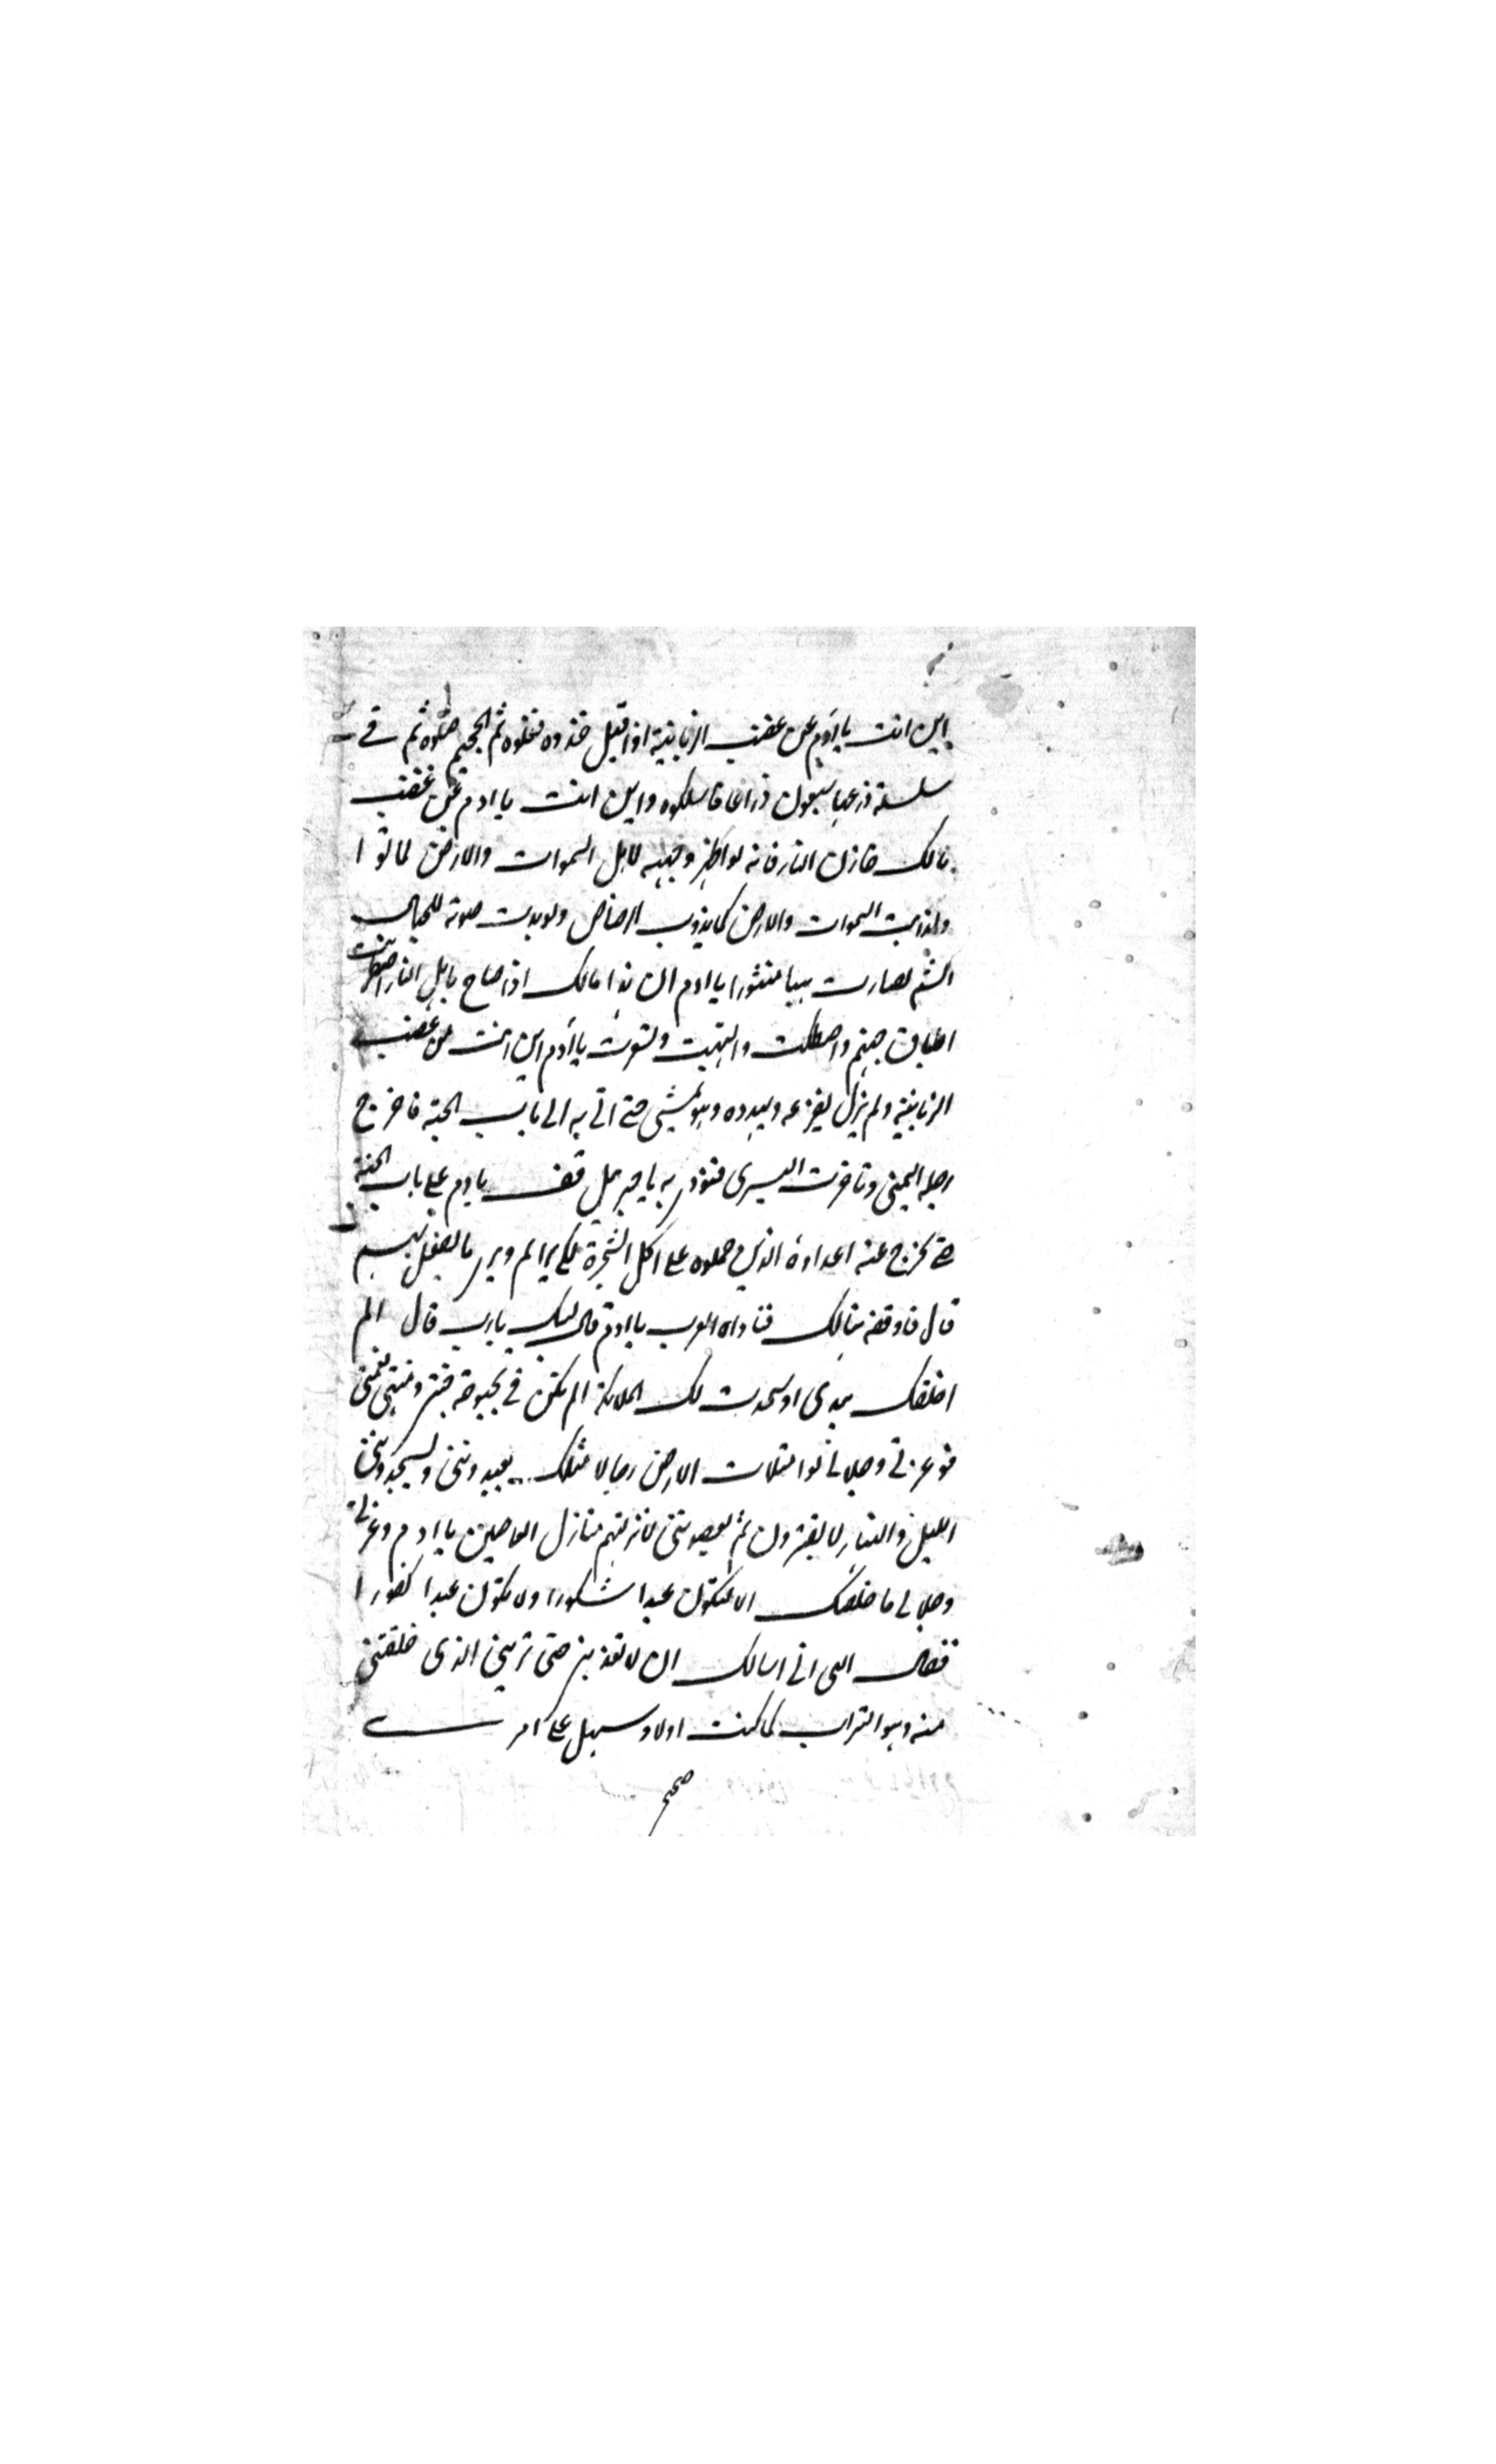 اين انت يا آدم عن غضب الزبانية اذا قيل خذوه فغلوه ثم الجحيم صلوه ثم في
سلسلة ذرعها سبعون ذراعا فاسلكوه واين انت يا ادم عن غضب
مالك خازن النار فانه لو اظهر وجهه لاهل السموات والارض لماتوا
ولذابت السموات والارض كما يذوب الرصاص ولو بدت صوته للجبال
الشم لصارت هبيا منثورا يا ادم ان هذا مالك اذا صاح باهل النار اضطربت
اطباق جهنم واصطكت والتهبت وتسعرت يا آدم اين انت من غضب
الزبانية ولم يزل يفزعه ويهدده وهو يمشي حتى اتى به الى باب الجنة فاخرج
رجله اليمنى وتاخرت اليسرى فنودي به يا جبرئيل قف بادم على باب الجنة
حتى تخرج عنه اعداوه الذين حملوه على اكل الشجرة لكي يراهم ويرى ما يفعل بهم
قال فاوقفه هنالك فناداه الرب يا ادم قال لبيك يارب قال الم
اخلقك بيدى او سجدت لك الملايكة الم تكن في بحبوحة جنتي
فوعزتي وجلالي لو امتلات الارض رجالا مثلك يعبدونني ويسجدونني
الليل والنهار لا يفترون ثم يعصونني لانزلتهم منازل العاصين يا ادم وعزتي
وجلالي ما خلقتك الا لتكون عبدا شكورا ولا تكون عبدا كفورا
فقال الهى اني اسالك ان لا تعذبني حتى تريني الذى خلقتني
منه وهو التراب كما كنت اولا وسهل على امر
صحح